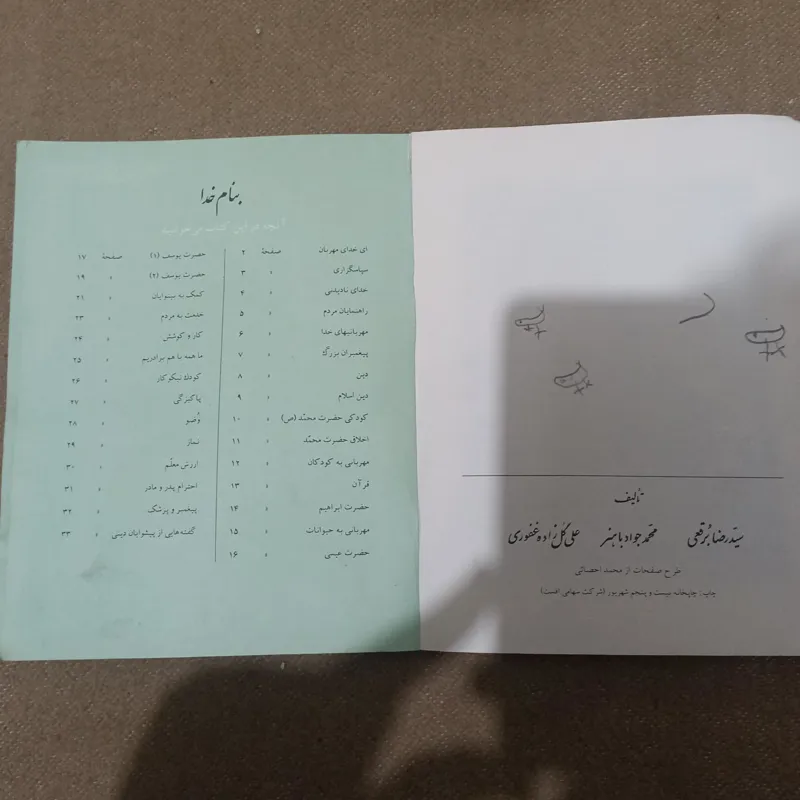 بنام خدا
آنچه در این کتاب می‌خوانید
ای خدای مهربان صفحهٔ ۲
سپاسگزاری » ۳
خدای نادیدنی » ۴
راهنمایان مردم » ۵
مهربانیهای خدا » ۶
پیغمبران بزرگ » ۷
دین » ۸
دین اسلام » ۹
کودکی حضرت محمّد (ص) » ۱۰
اخلاق حضرت محمّد » ۱۱
مهربانی به کودکان » ۱۲
قرآن » ۱۳
حضرت ابراهیم » ۱۴
مهربانی به حیوانات » ۱۵
حضرت عیسی » ۱۶
حضرت یوسف (۱) صفحهٔ ۱۷
حضرت یوسف (۲) » ۱۹
کمک به بینوایان » ۲۱
خدمت به مردم » ۲۳
کار و کوشش » ۲۴
ما همه با هم برادریم » ۲۵
کودک نیکوکار » ۲۶
پاکیزگی » ۲۷
وُضو » ۲۸
نماز » ۲۹
ارزش معلّم » ۳۰
احترام پدر و مادر » ۳۱
پیغمبر و پزشک » ۳۲
گفته‌هایی از پیشوایان دینی » ۳۳
تألیف
سیّد رضا بُرقعی محمّد جواد باهنر علی گُل زاده غفوری
طرح صفحات از محمد احصائی
چاپ: چاپخانه بیست و پنجم شهریور (شرکت سهامی افست)